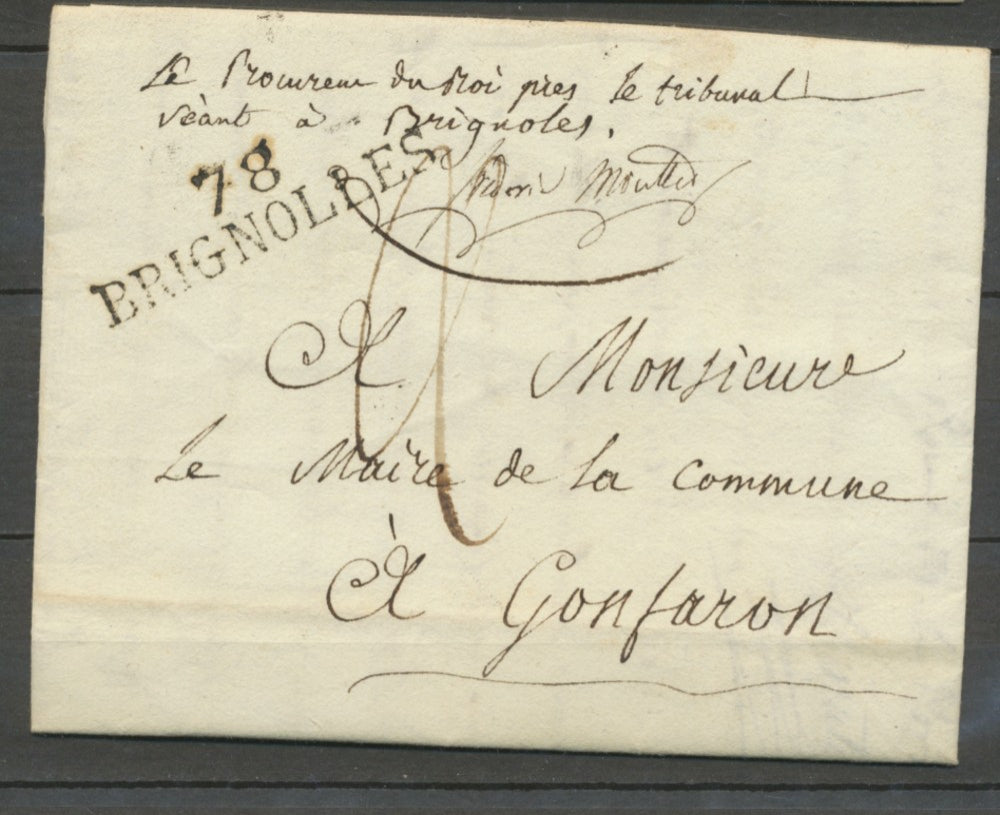 Le Procureur du Roi pres le tribunal
séant à Brignoles.
78
BRIGNOLLES
A Monsieure
Le Maire de la commune
À Gonfaron